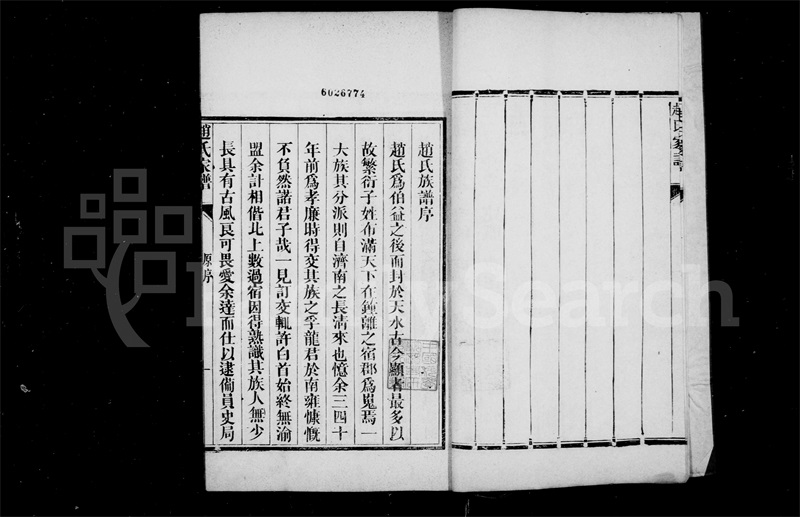 6026774
趙氏家譜
趙氏族譜序
趙氏為伯益之後而封於天水古今顯者最多以
故繁衍子姓布滿天下在鍾離之宿郡為嵬焉一
大族其分派則自濟南之長清來也憶余三四十
年前為孝廉時得交其族之孚龍君於南雍慷慨
不負然諾君子哉一見訂交輒許白首始終無渝
盟余計相偕北上數過宿因得熟識其族人無少
長具有古風良可畏愛余達而仕以逮備員史局
趙氏家譜
原序
一
FamilySearch